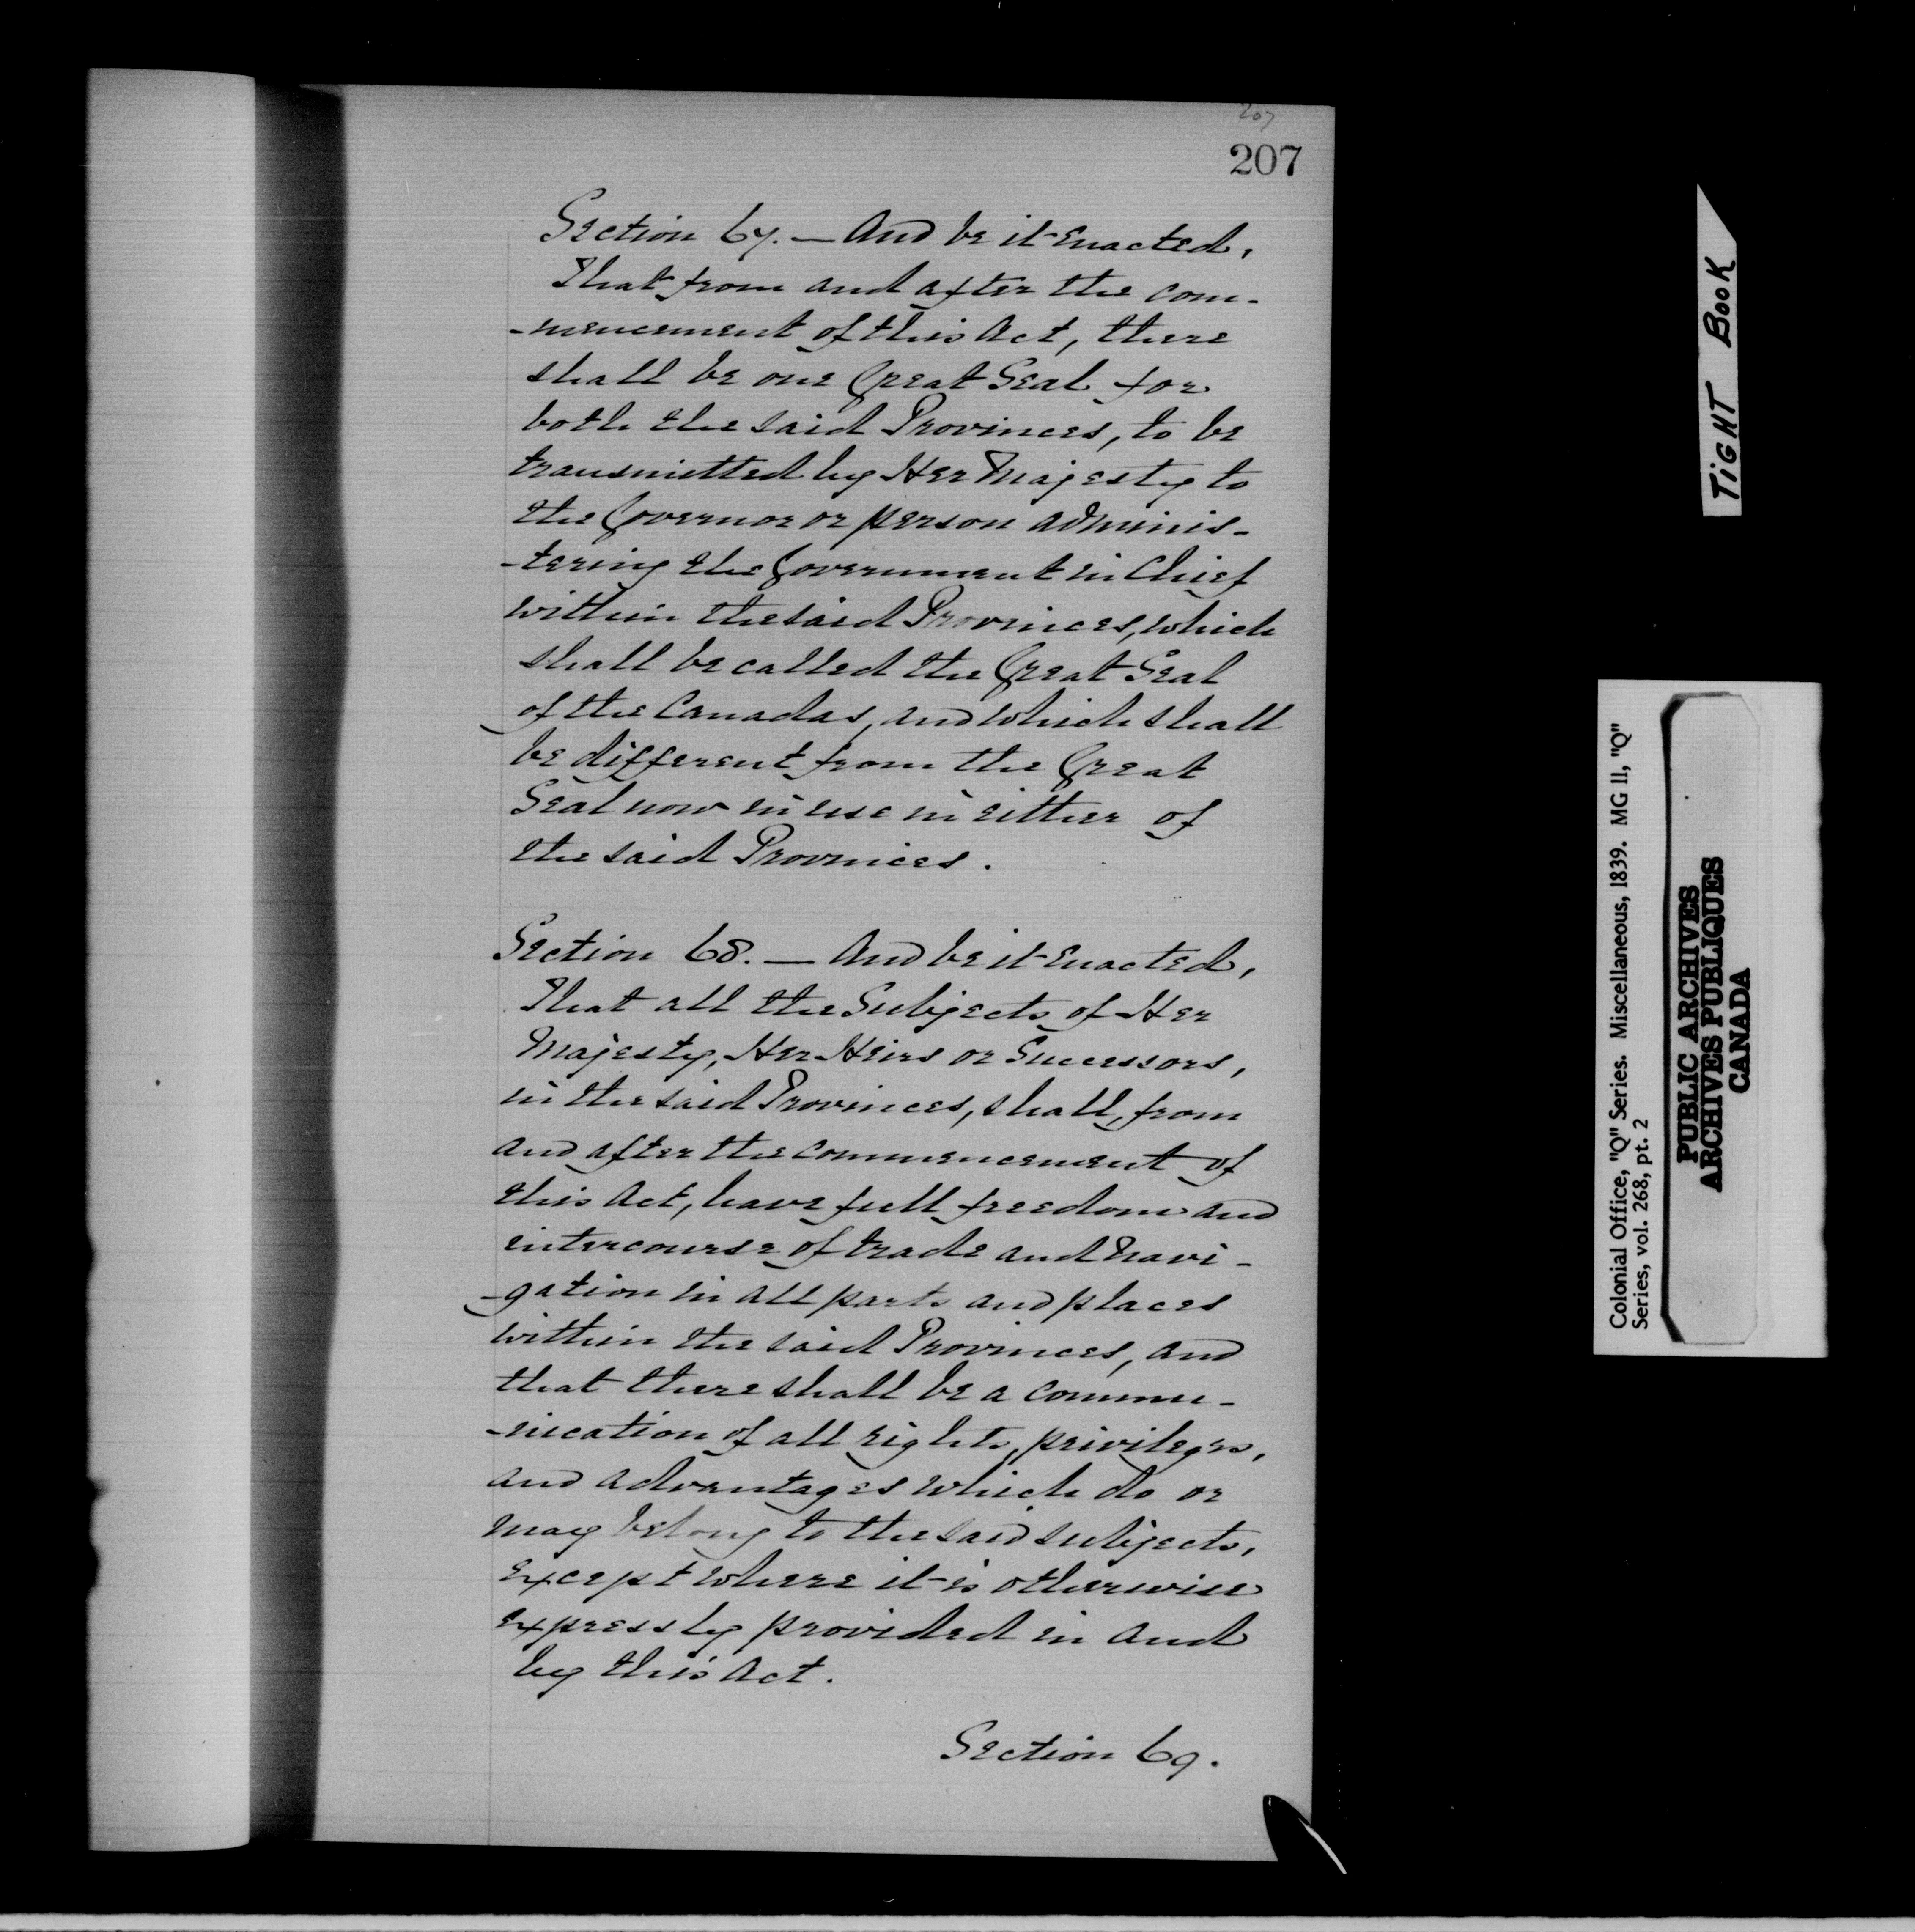 207
207
Section 67. — And be it Enacted,
That from and after the com-
-mencement of this Act, there
shall be one Great Seal for
both the said Provinces, to be
transmitted by Her Majesty to
the Governor or person adminis-
-tering the Government in Chief
within the said Provinces, which
shall be called the Great Seal
of the Canadas, and which shall
be different from the Great
Seal now in use in either of
the said Provinces.
Section 68. — And be it Enacted,
That all the Subjects of Her
Majesty, Her Heirs or Successors,
in the said Provinces, shall, from
and after the commencement of
this Act, have full freedom and
intercourse of trade and Navi-
-gation in all parts and places
within the said Provinces, and
that there shall be a commu-
-nication of all rights, privileges,
and advantages which do or
may belong to the said subjects,
except where it is otherwise
expressly provided in and
by this Act.
Section 69.
TIGHT BOOK
Colonial Office, "Q" Series. Miscellaneous, 1839. MG 11, "Q"
Series, vol. 268, pt. 2
PUBLIC ARCHIVES
ARCHIVES PUBLIQUES
CANADA